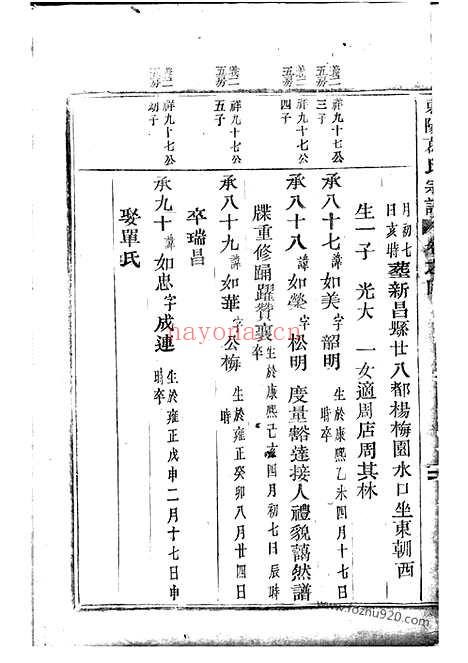 東陽葛氏宗譜
月初七
日亥時 葬新昌縣廿八都楊梅園水口坐東朝西
生一子 光大 一女適周店周其林
卷二 祥九十七公
五房 三子
承八十七 諱如美 字韶明 生於康熙乙未四月十七日
時卒
卷二 祥九十七公
五房 四子
承八十八 諱如榮 字松明 度量豁達接人禮貌藹然譜
牒重修踊躍贊襄 生於康熙己亥四月初七日辰時
卒
卷二 祥九十七公
五房 五子
承八十九 諱如華 字公梅 生於雍正癸卯八月廿四日
時卒
卒瑞昌
卷二 祥九十七公
五房 幼子
承九十 諱如忠 字成連 生於雍正戊申二月十七日申
時卒
娶單氏
hayona.com
www.fozhu920.com